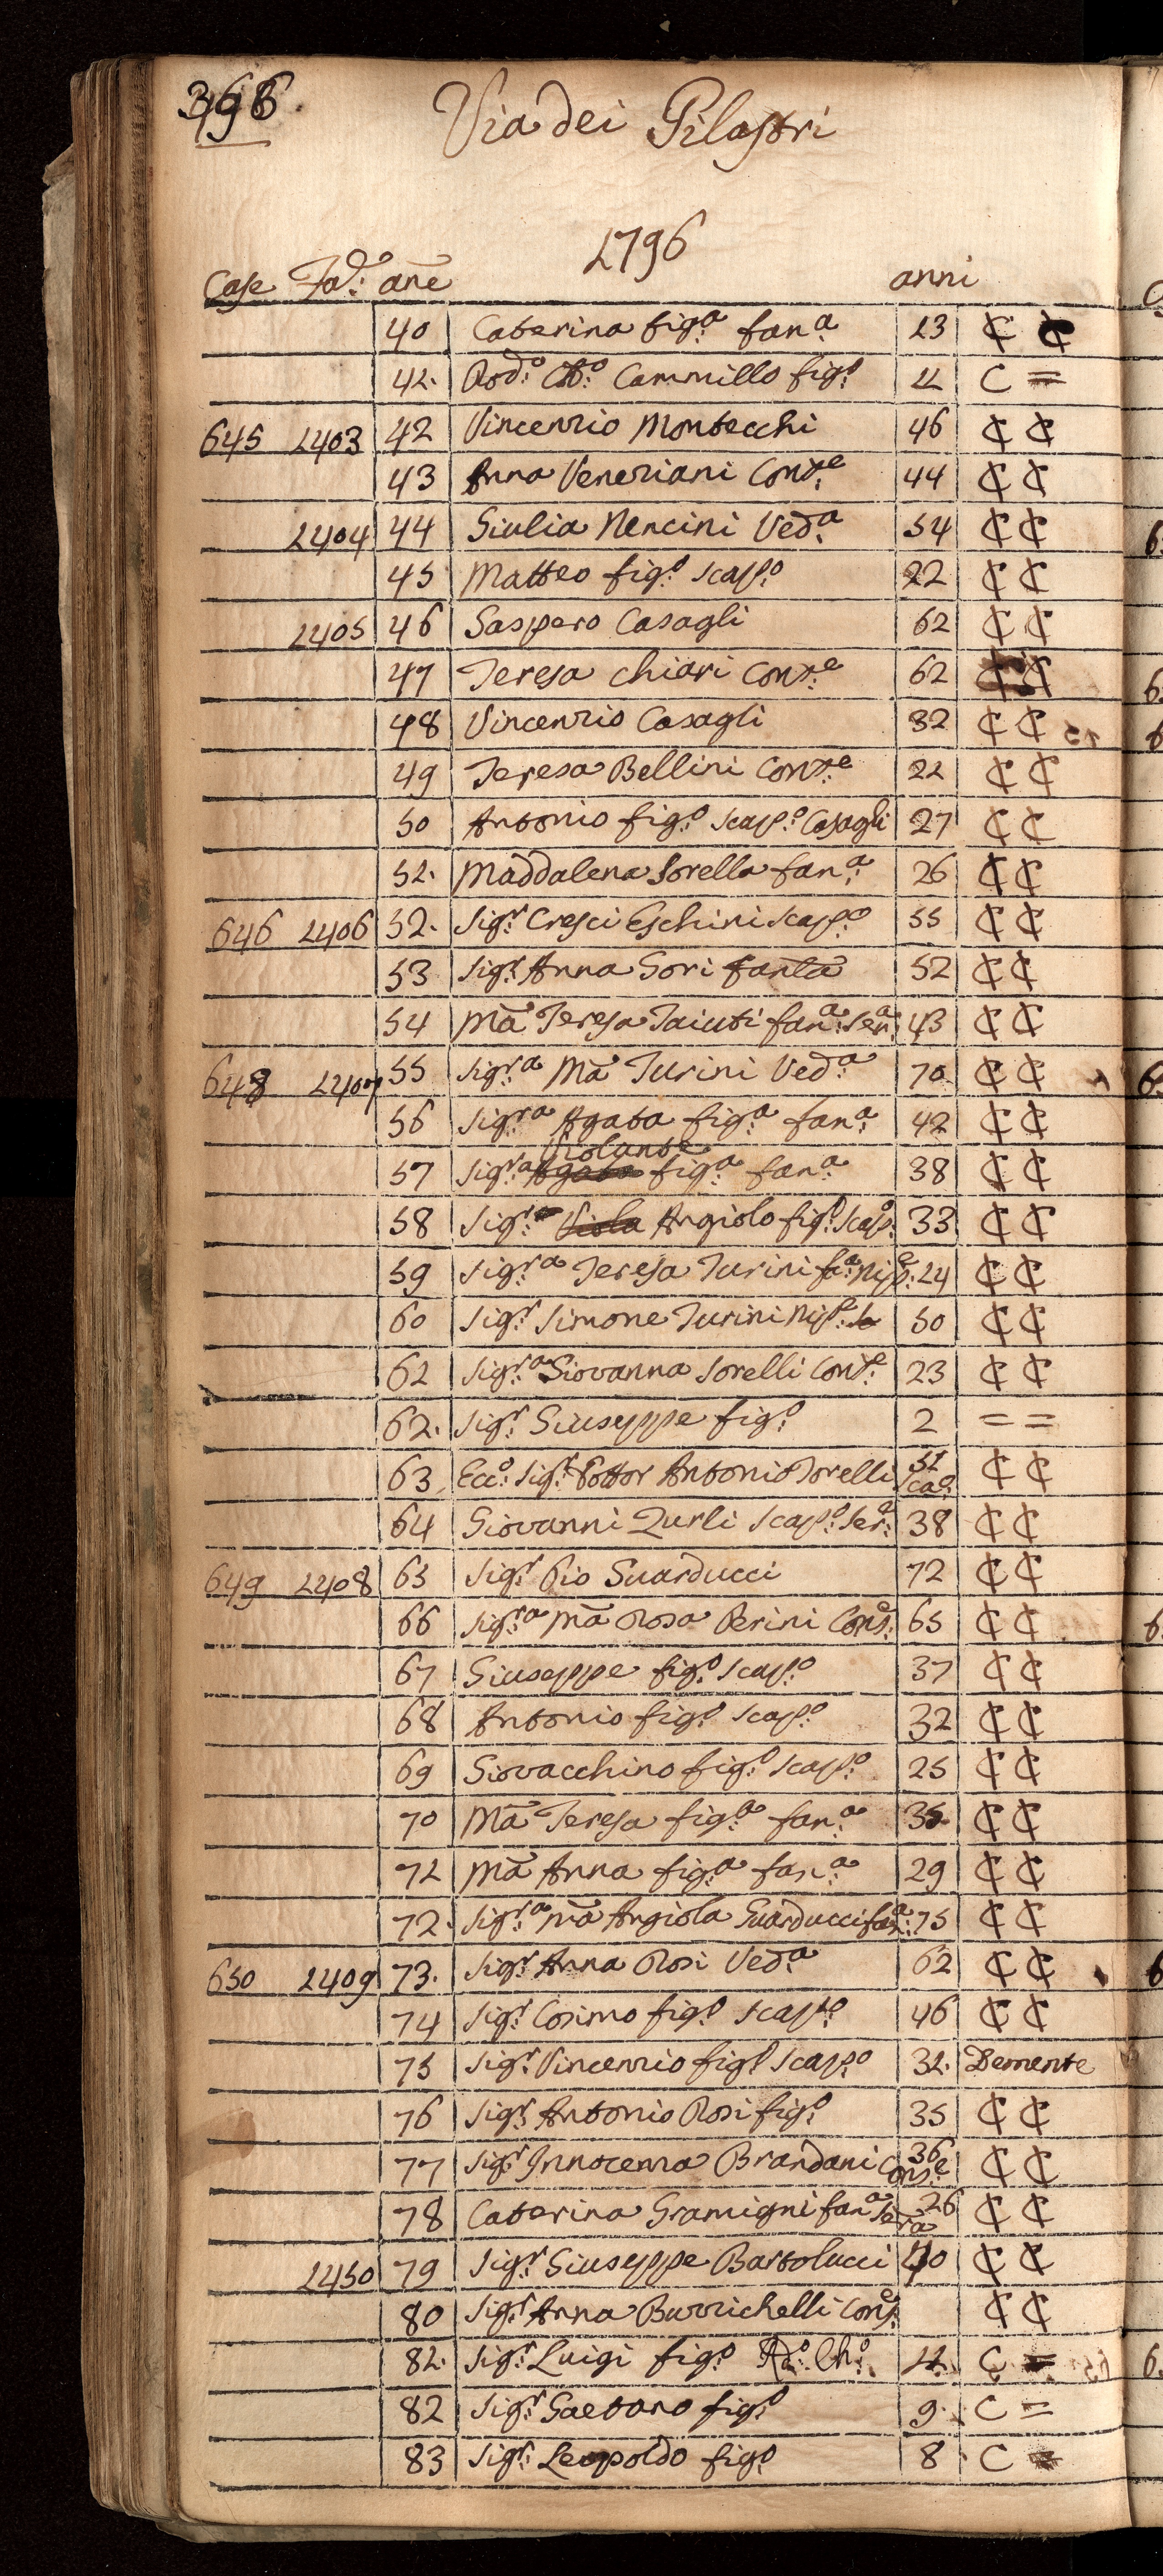 Via dei Pilastri
1796
Case Fa: ane anni
40 Caterina fig:a fan:a 23 ₵ ₵
41. Rod:o Ab:o Cammillo fig:o 11 C =
645 1403 42 Vincenzio Montecchi 46 ₵ ₵
43 Anna Veneziani Cons:e 44 ₵ ₵
1404 44 Giulia Nencini Ved:a 54 ₵ ₵
45 Matteo fig:o scap:o 22 ₵ ₵
1405 46 Gaspero Casagli 62 ₵ ₵
47 Teresa Chiari Cons:e 62 ₵ ₵
48 Vincenzio Casagli 32 ₵ ₵
49 Teresa Bellini Cons:e 21 ₵ ₵
50 Antonio fig:o scap:o Casagli 27 ₵ ₵
51. Maddalena Sorella fan:a 26 ₵ ₵
646 1406 52. Sig:r Cresci Eschini scap:o 55 ₵ ₵
53 Sig:r Anna Gori fanla 52 ₵ ₵
54 Mã Teresa Taiuti fan:a Ser:a 43 ₵ ₵
648 1407 55 Sig:ra Mã Turini Ved:a 70 ₵ ₵
56 Sig:ra Agata fig:a fan:a 42 ₵ ₵
Violante
57 Sig:ra Agata fig:a fan:a 38 ₵ ₵
58 Sig:r Viola Angiolo fig:o Scap:o 33 ₵ ₵
59 Sig:ra Teresa Turini fa:a Nip:e 24 ₵ ₵
60 Sig:r Simone Turini Nip:e 50 ₵ ₵
61 Sig:ra Giovanna Sorelli Cons:e 23 ₵ ₵
62. Sig:r Giuseppe fig:o 2 = =
63 Ecc:o Sig:r Dottor Antonio Torelli Sca:o 51 ₵ ₵
64 Giovanni Zurli scap:o Ser:e 38 ₵ ₵
649 1408 65 Sig:r Pio Guarducci 72 ₵ ₵
66 Sig:ra Mã Rosa Perini Cons:e 65 ₵ ₵
67 Giuseppe fig:o scap:o 37 ₵ ₵
68 Antonio fig:o scap:o 32 ₵ ₵
69 Giovacchino fig:o scap:o 25 ₵ ₵
70 Mã Teresa fig:a fan:a 35 ₵ ₵
71 Mã Anna fig:a fan:a 29 ₵ ₵
72. Sig:ra Mã Angiola Guarducci fan:a 75 ₵ ₵
650 1409 73. Sig:r Anna Rosi Ved:a 62 ₵ ₵
74 Sig:r Cosimo fig:o scap:o 46 ₵ ₵
75 Sig:r Vincenzio fig:o scap:o 31. Demente
76 Sig:r Antonio Rosi fig:o 35 ₵ ₵
77 Sig:r Innocenza Brandani Cons:e 36 ₵ ₵
78 Caterina Gramigni fan:a Serva 26 ₵ ₵
1410 79 Sig:r Giuseppe Bartolucci 40 ₵ ₵
80 Sig:r Anna Burrichelli Cons:e ₵ ₵
81. Sig:r Luigi fig:o Ro:o Ch:o 11 C =
82 Sig:r Gaetano fig:o 9. C =
83 Sig:r Leopoldo fig:o 8 C =